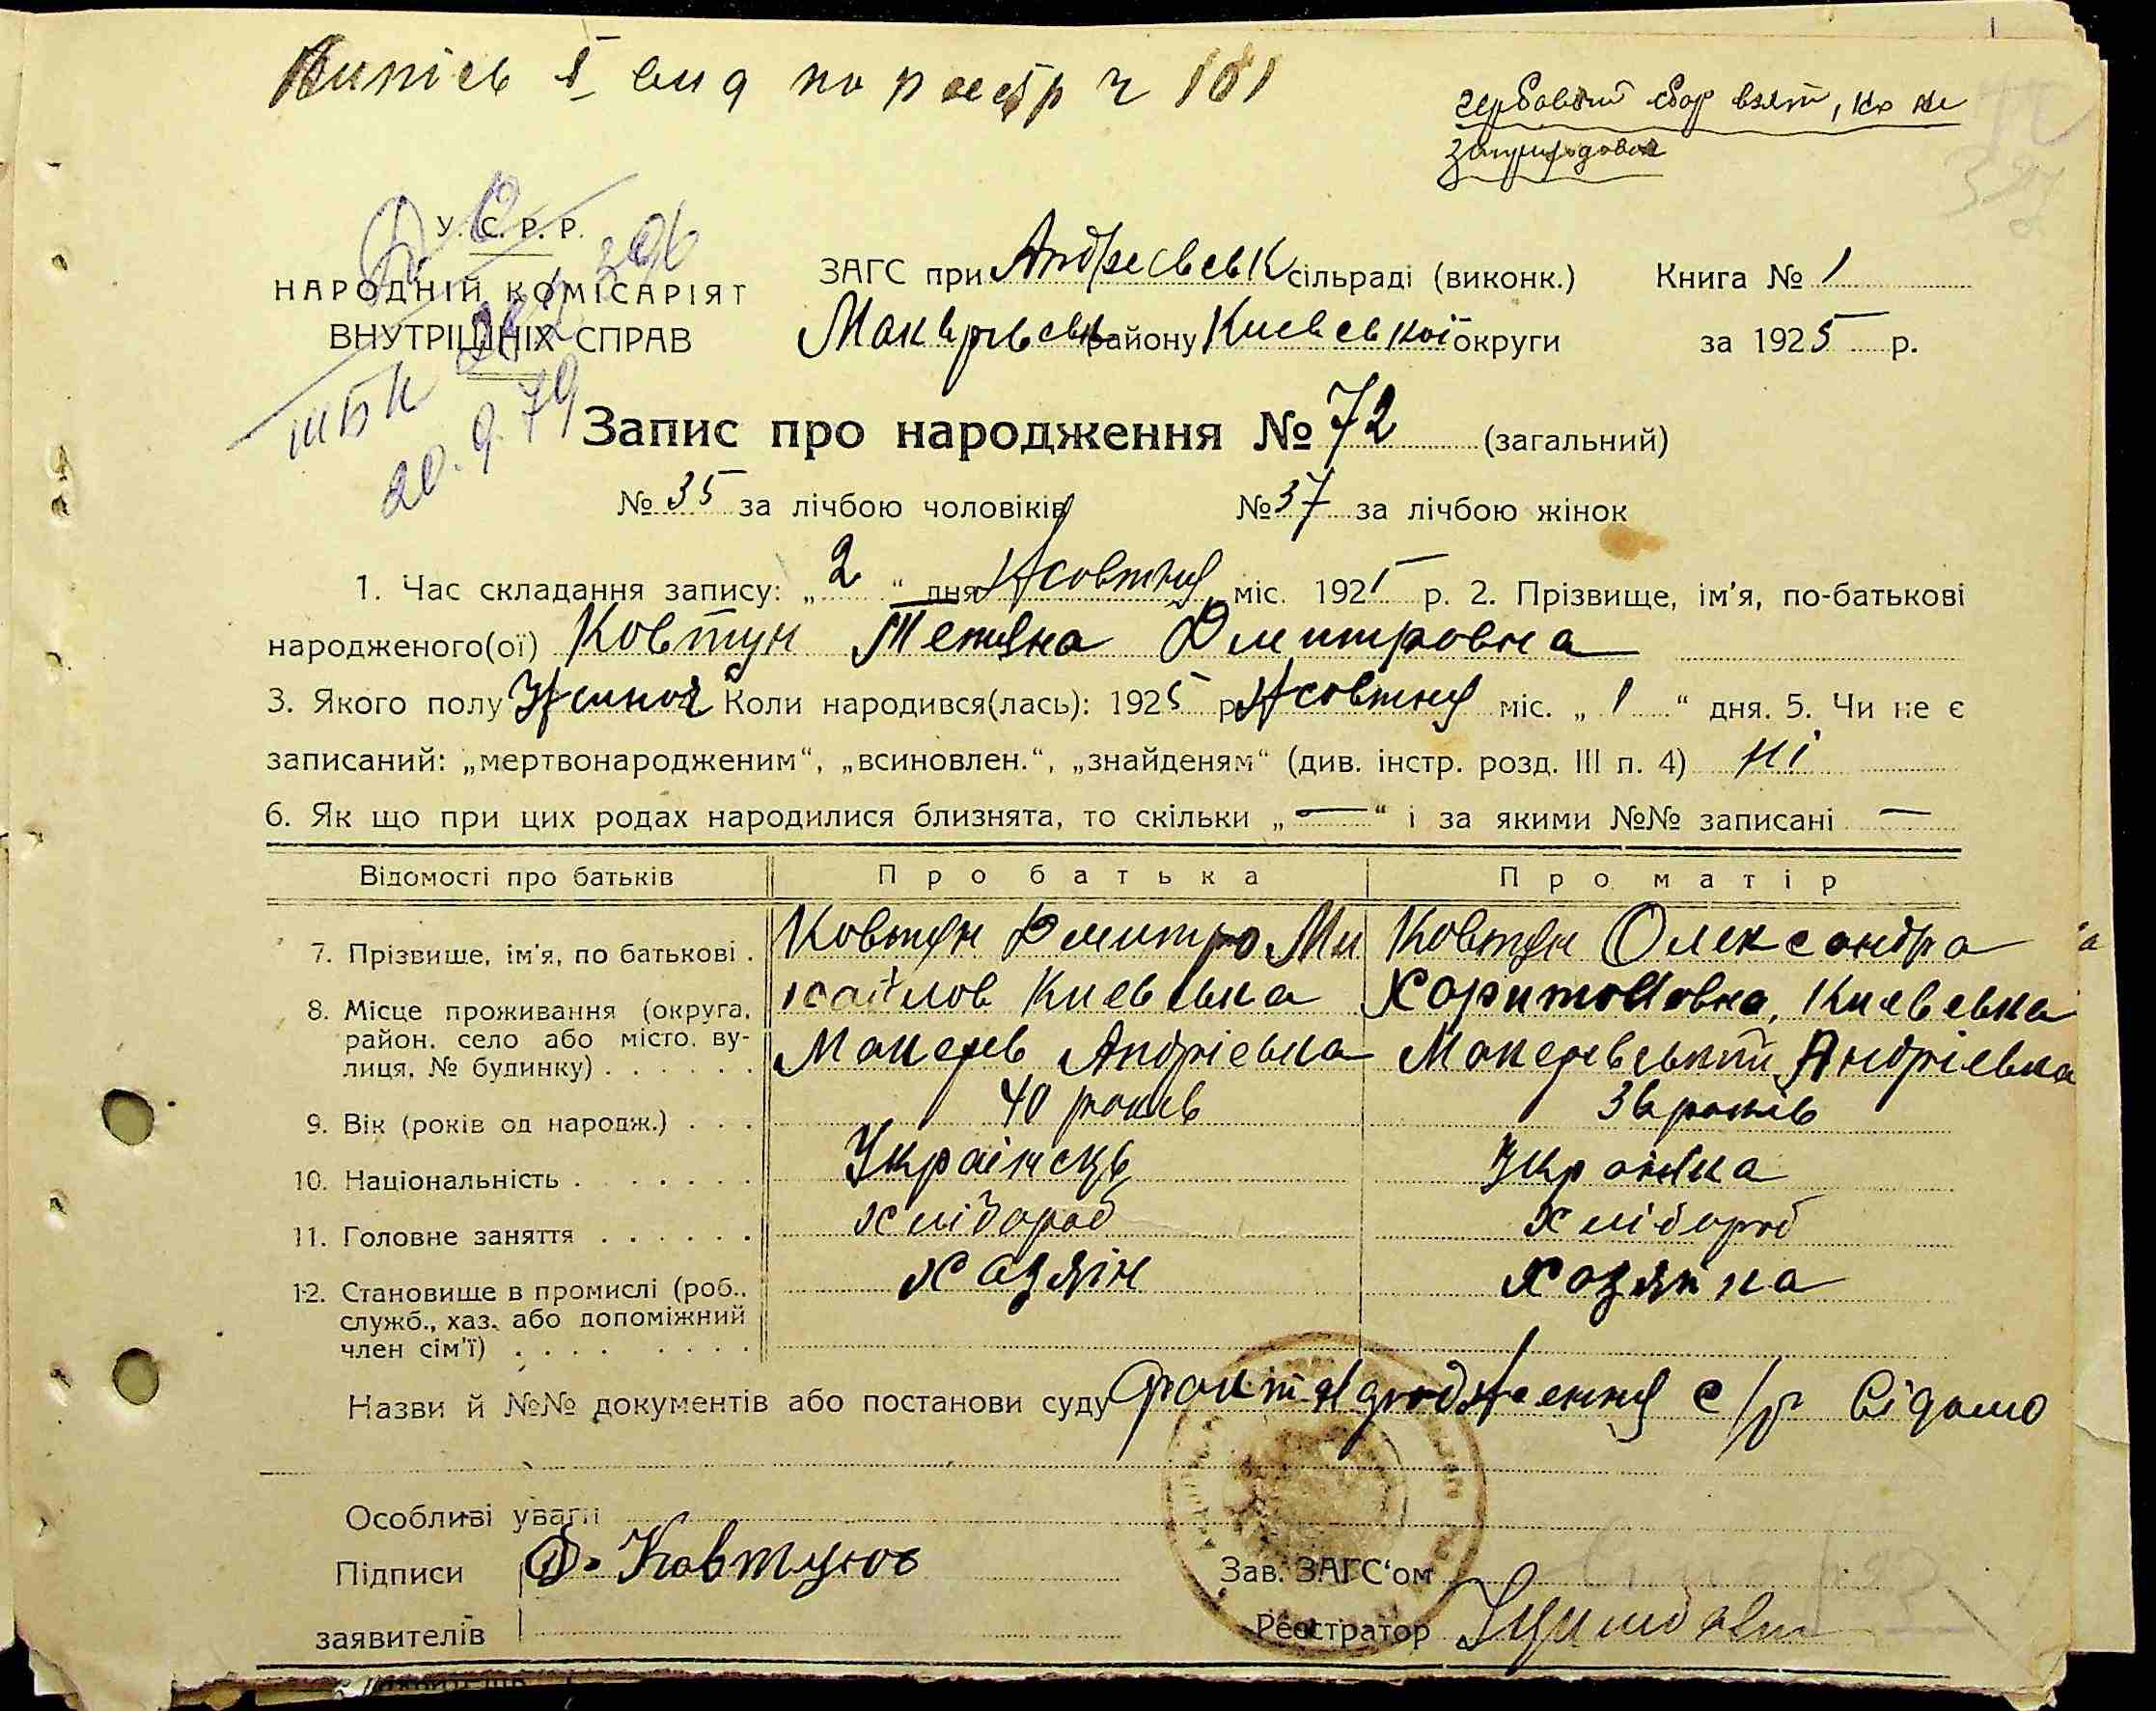 Випісь I вид по реєстр ч 181
гербовий сбор взят, но не
У. С. Р. Р.
НАРОДНІЙ КОМІСАРІЯТ
ВНУТРІШНІХ СПРАВ
20.9.79
ЗАГС при Андреевськ сільраді (виконк.) Книга № 1
району Киевськоі округи за 1925 р.
Запис про народження № 72 (загальний)
№ 35 за лічбою чоловіків № 37 за лічбою жінок
1. Час складання запису: „2“ дня Жовтня міс. 1925 р. 2. Прізвище, ім'я, по-батькові
народженого(ої) Ковтун Тетяна Дмитровна
3. Якого полу Жіноч Коли народився(лась): 1925 р Жовтня міс. „1“ дня. 5. Чи не є
записаний: „мертвонародженим“, „всиновлен.“, „знайденям“ (див. інстр. розд. III п. 4) ні
6. Як що при цих родах народилися близнята, то скільки „—“ і за якими №№ записані —
Відомості про батьків Про батька Про матір
7. Прізвище, ім'я, по батькові . Ковтун Дмитро Ми Ковтун Олександра
8. Місце проживання (округа, хайлов Киевська Харитоновна, Киевська
район, село або місто, ву- Макарев Андріевка Макаревський Андріевка
лиця, № будинку) . . . . . .
9. Вік (років од народж.) . . . 40 років 36 років
10. Національність . . . . . . . Українець Українка
11. Головне заняття . . . . . . хлібороб хлібороб
12. Становище в промислі (роб., хазяін хазяйка
служб., хаз. або допоміжний
член сім'ї) . . . . . . . .
Назви й №№ документів або постанови суду факт народження с/р відомо
Особливі уваги
Підписи Д. Ковтунов Зав. ЗАГС'ом
заявителів Реєстратор